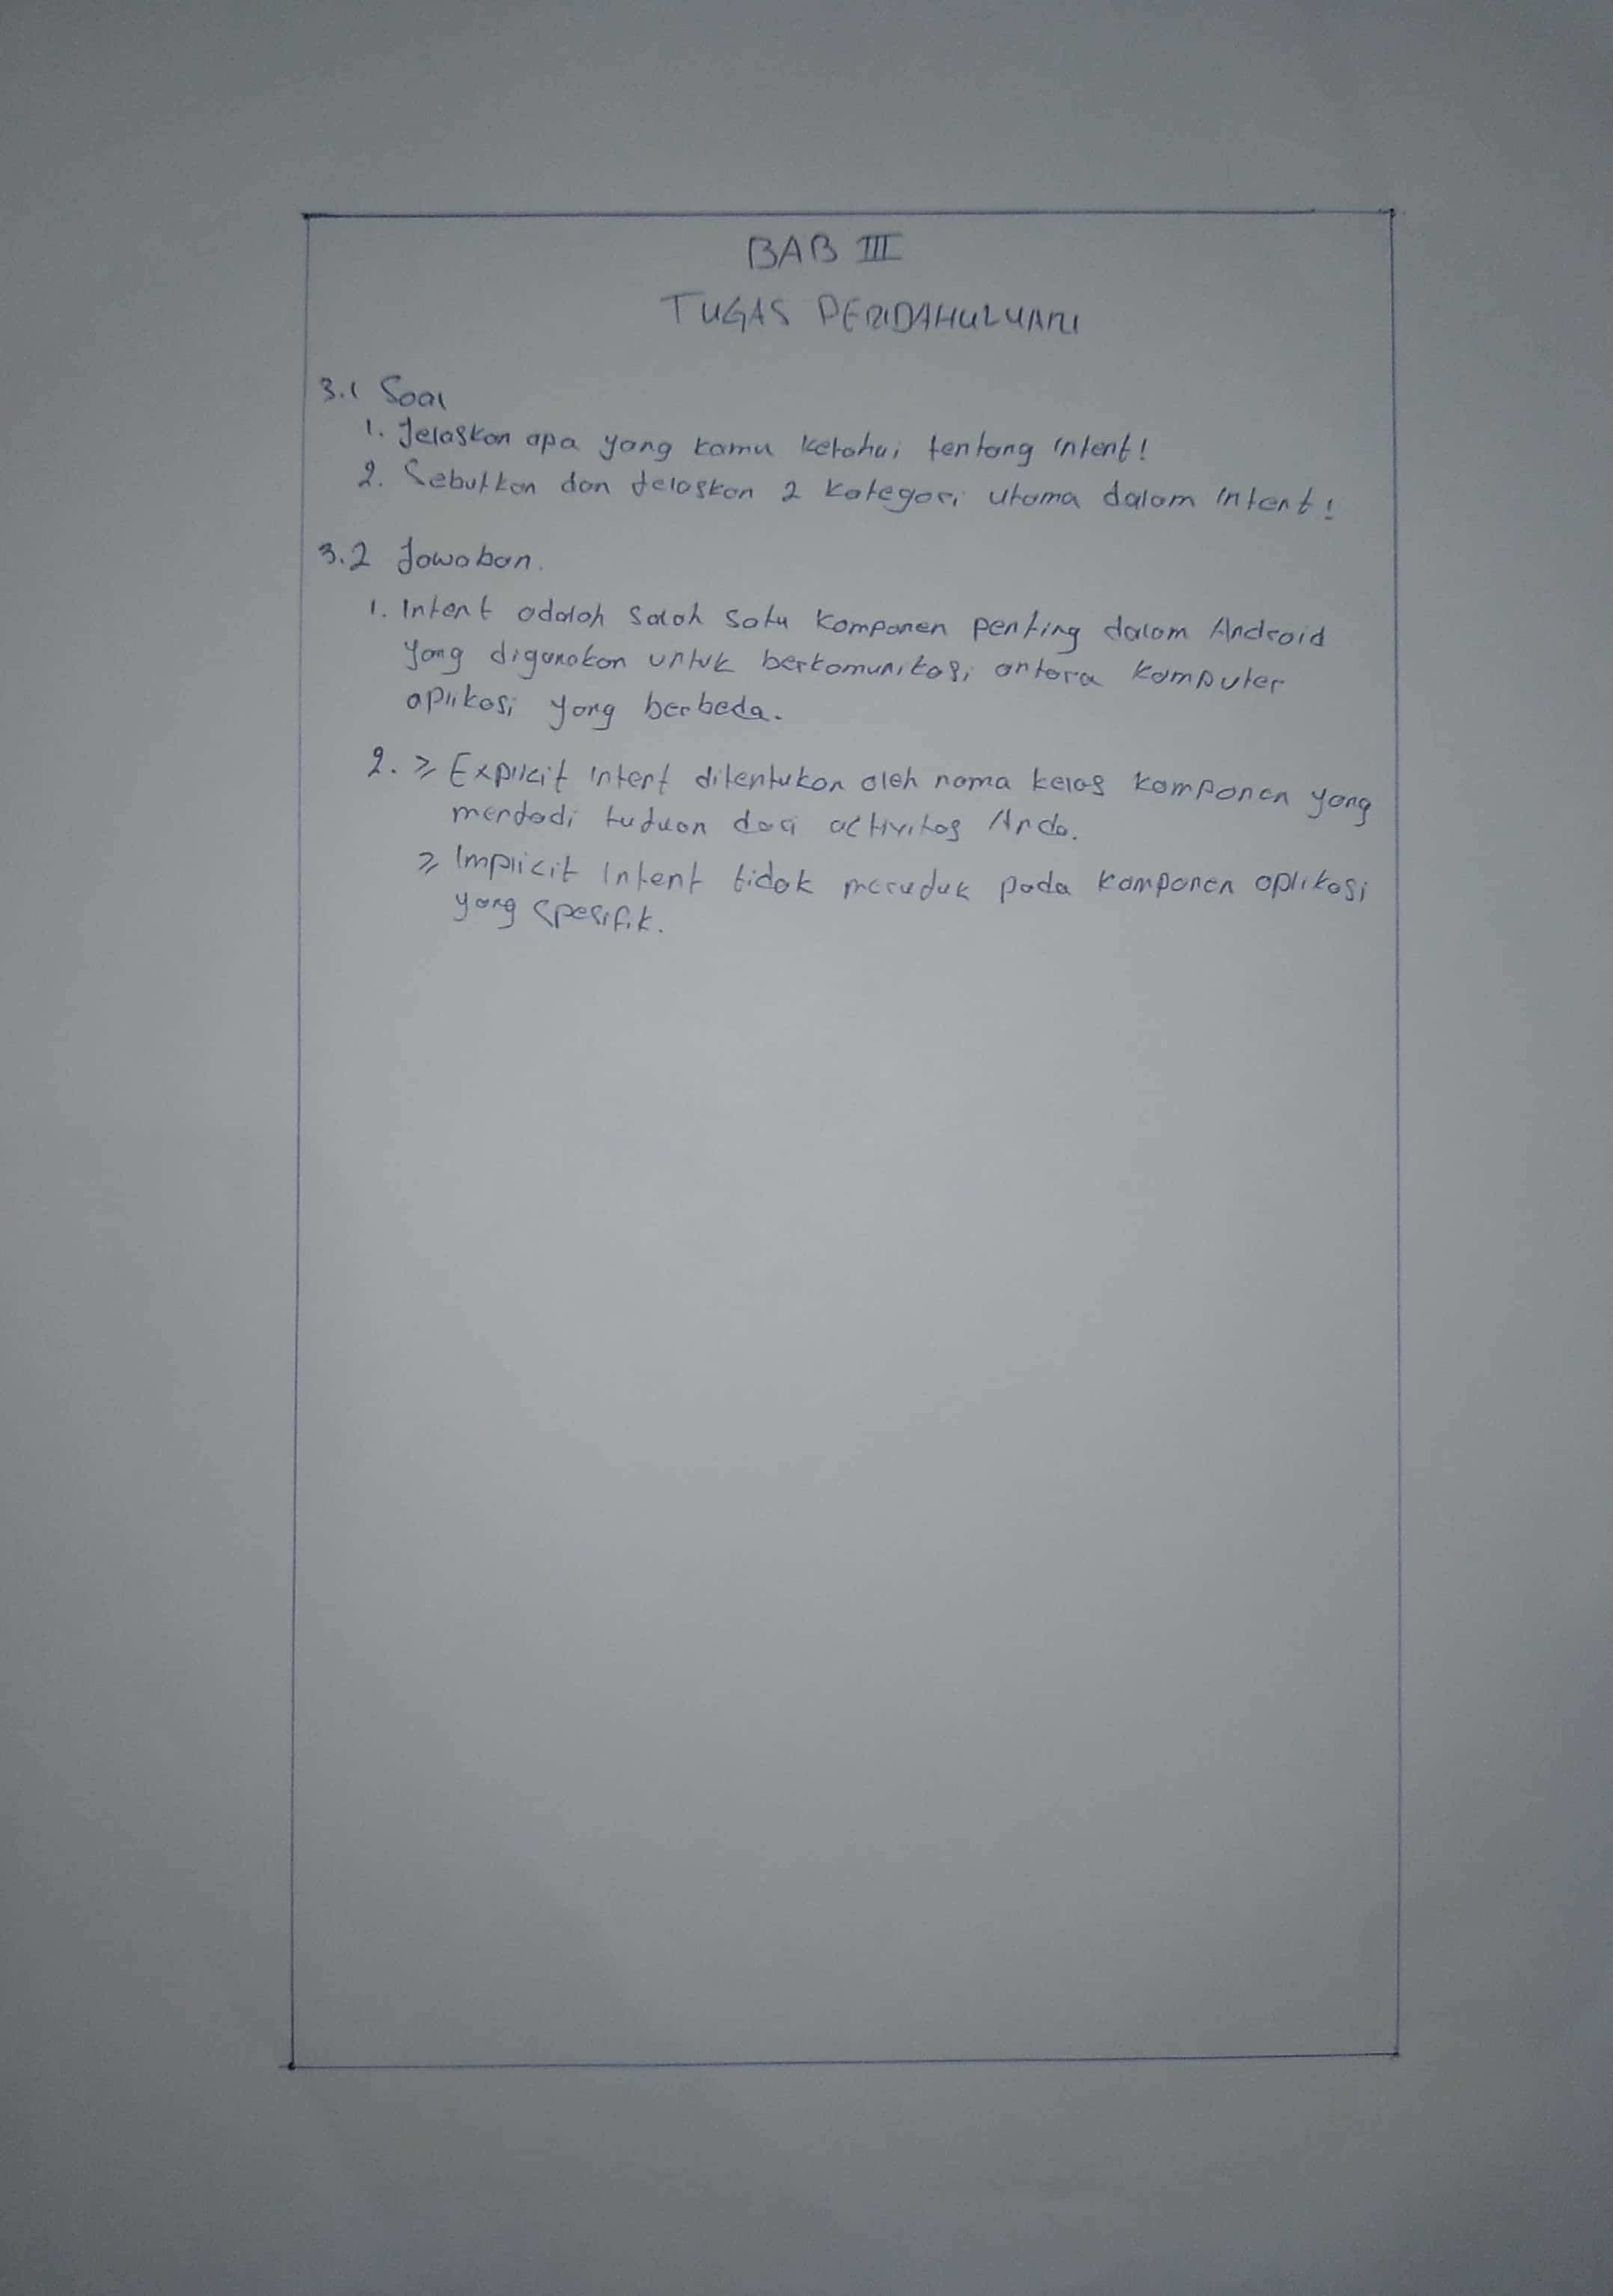 BAB III
TUGAS PENDAHULUAN
3.1 Soal
1. Jelaskan apa yang kamu ketahui tentang intent!
2. Sebutkan dan Jelaskan 2 Kategori utama dalam intent!
3.2 Jawaban.
1. Intent adalah salah satu komponen penting dalam Android
yang digunakan untuk berkomunikasi antara komputer
aplikasi yang berbeda.
2. > Explicit intent ditentukan oleh nama kelas komponen yang
menjadi tujuan dari activitas Anda.
> Implicit Intent tidak merujuk pada komponen aplikasi
yang spesifik.